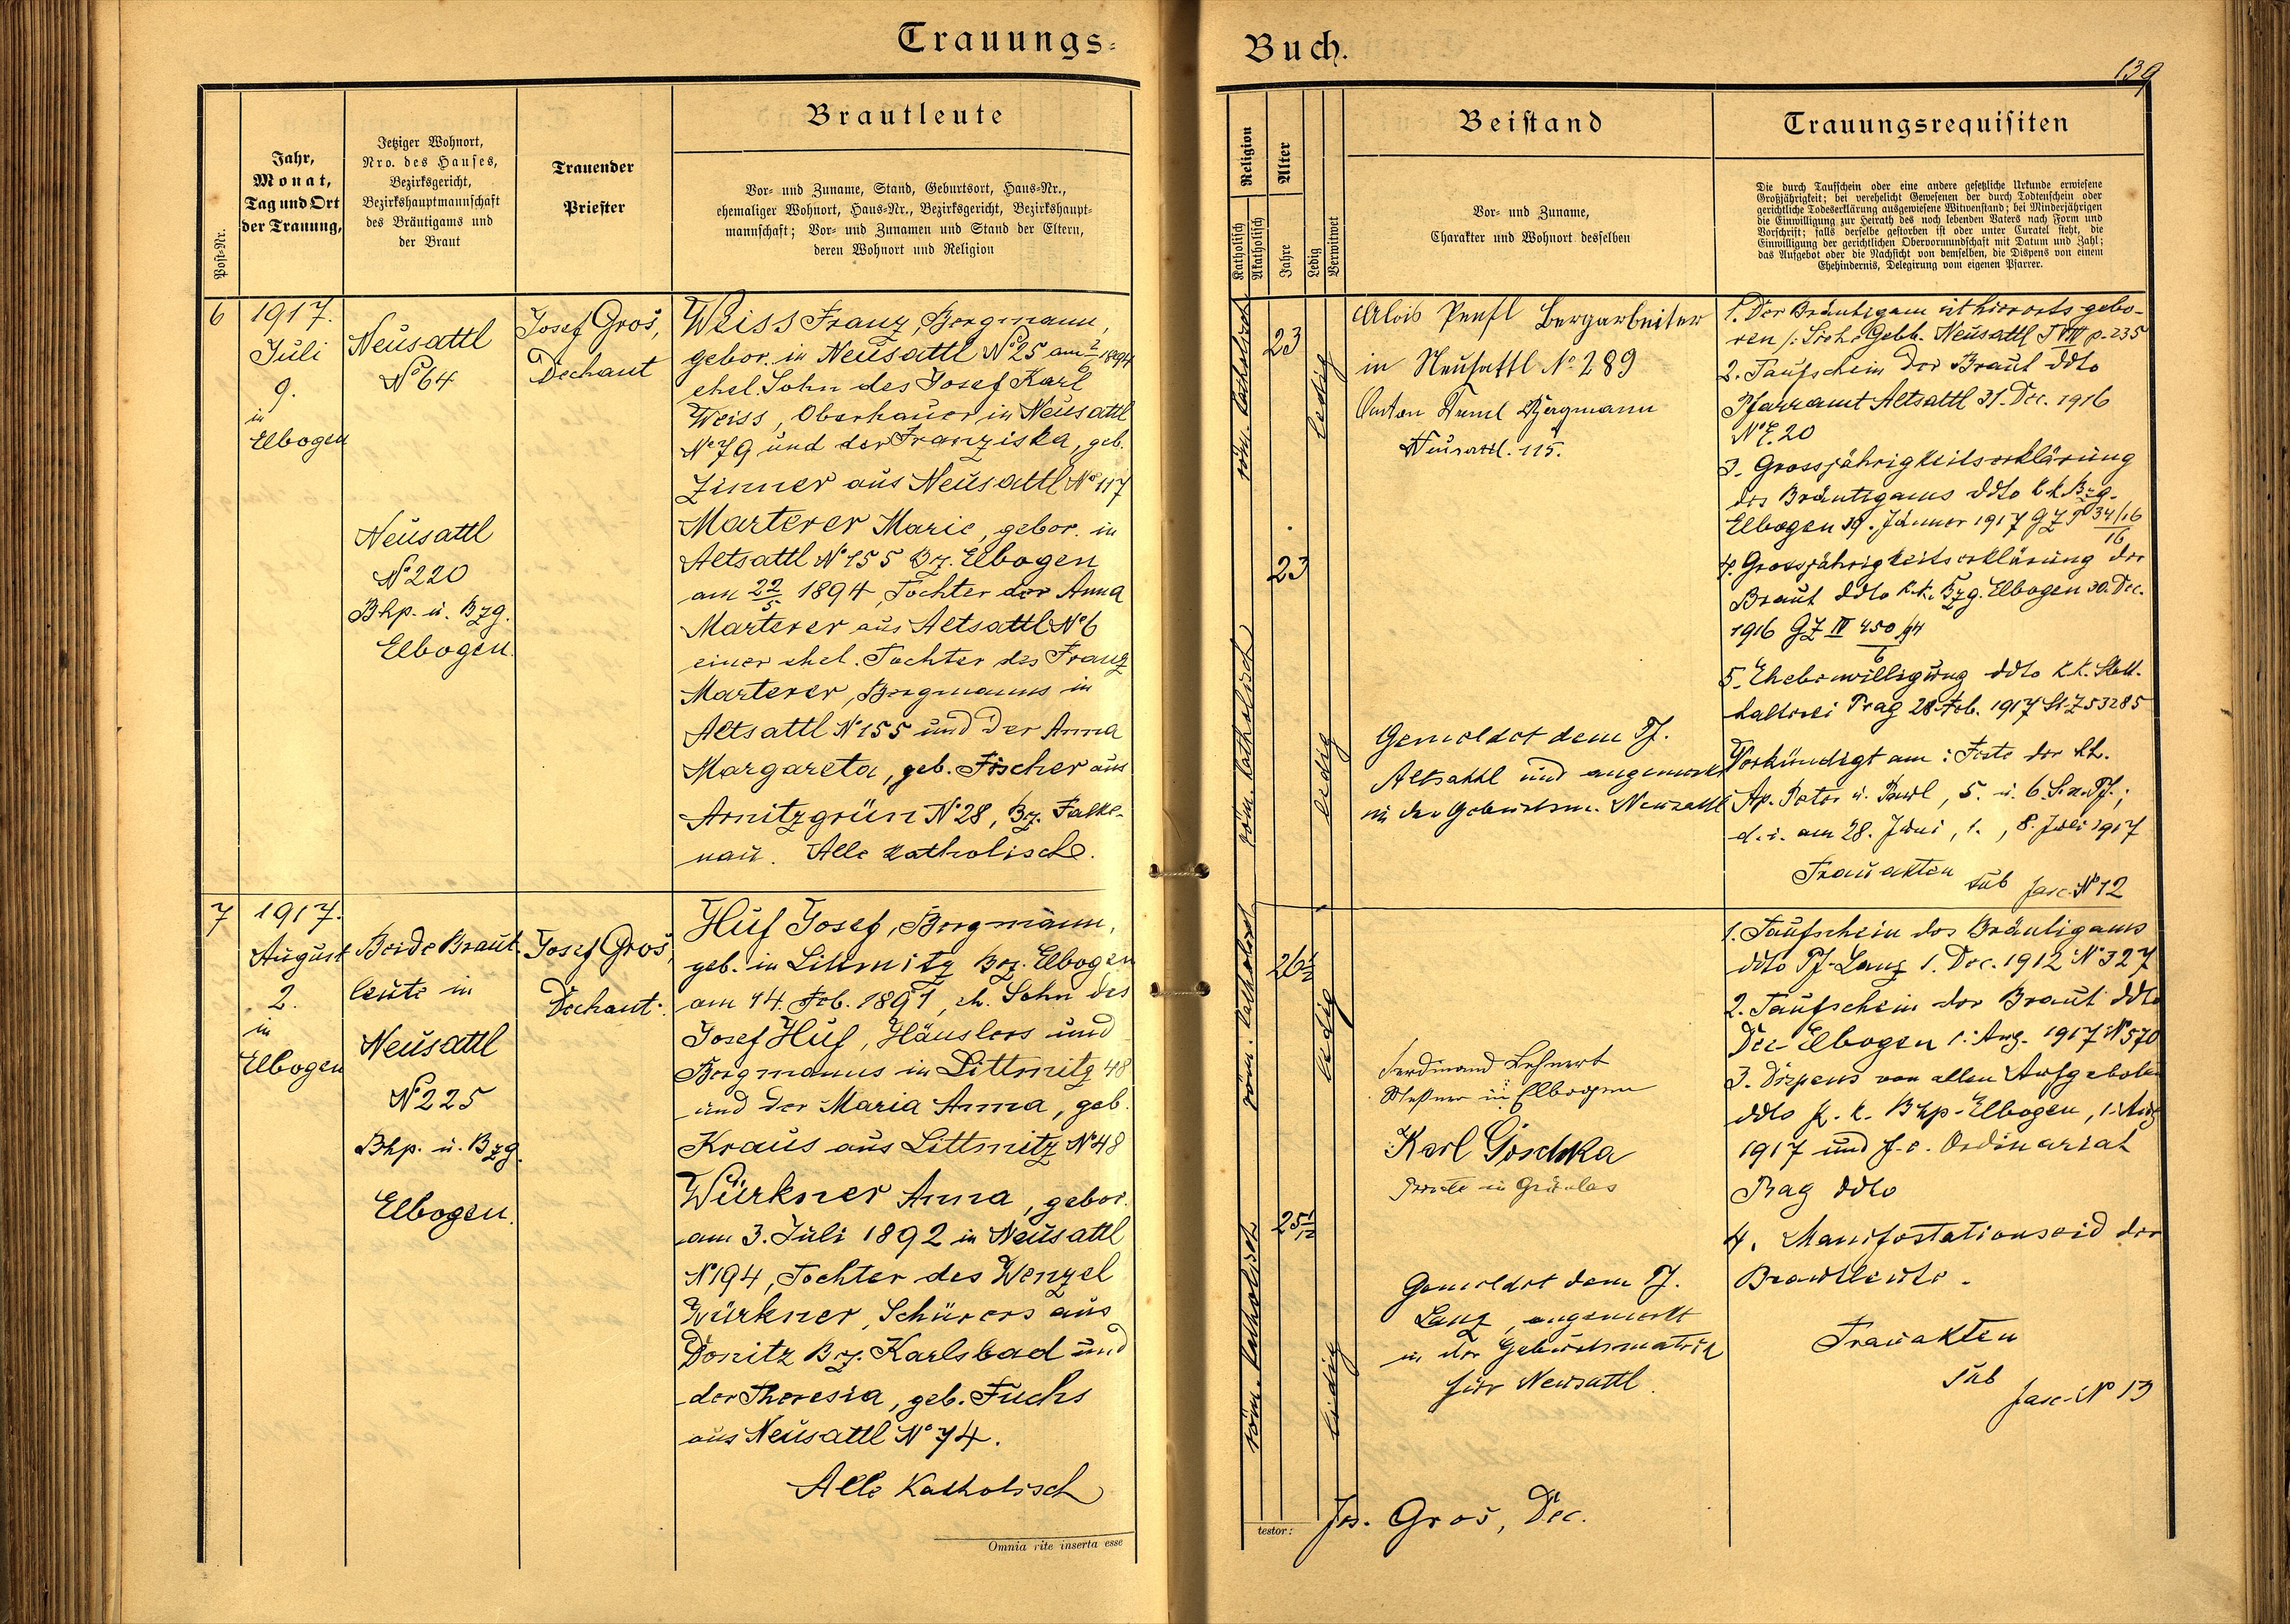 Trauungs-
Jahr,
Monat,
Tag und Ort
der Trauung,
Jetziger Wohnort,
Nro. des Hauses,
Bezirksgericht,
Bezirkshauptmannschaft
des Bräutigams und
der Braut
Trauender
Priester
Brautleute
Vor- und Zuname, Stand, Geburtsort, Haus-Nr.,
ehemaliger Wohnort, Haus-Nr., Bezirksgericht, Bezirkshaupt-
mannschaft; Vor- und Zunamen und Stand der Eltern,
deren Wohnort und Religion
Post-Nr.
6
1917.
Juli
9.
in
Elbogen
Neusattl
No 64
Josef Groš,
Dechant
Weiss Franz, Bergmann,
gebor. in Neusattl No 25 am 2/6 1894
ehel. Sohn des Josef Karl
Weiss, Oberhauer in Neusattl
No 79 und der Franziska, geb.
Zinner aus Neusattl No 117
Neusattl
No 220
Bhp. u. Bzg.
Elbogen.
Marterer Marie, gebor. in
Altsattl No 155 Bz. Elbogen
am 22/5 1894, Tochter der Anna
Marterer aus Altsattl No 6
einer ehel. Tochter des Franz
Marterer, Bergmanns in
Altsattl No 155 und der Anna
Margareta, geb. Fischer aus
Arnitzgrün No 28, Bz. Falke-
nau. Alle Katholisch.
7
1917.
August
2.
in
Elbogen
Beide Braut-
leute in
Neusattl
No 225
Bhp. u. Bzg.
Elbogen.
Josef Groš,
Dechant.
Huf Josef, Bergmann,
geb. in Littmitz Bez. Elbogen
am 14. Feb. 1891, eh. Sohn des
Josef Huf, Häuslers und
Bergmanns in Littmitz 48
und der Maria Anna, geb.
Kraus aus Littmitz No 48
Würkner Anna, gebor.
am 3. Juli 1892 in Neusattl
No 194, Tochter des Wenzel
Würkner, Schürers aus
Donitz Bz. Karlsbad und
der Theresia, geb. Fuchs
aus Neusattl No 74.
Alle Katholisch
Omnia rite inserta esse
Buch.
139
Religion
Katholisch
Akatholisch
Alter
Jahre
Ledig
Verwitwet
Beistand
Vor- und Zuname,
Charakter und Wohnort desselben
Trauungsrequisiten
Die durch Taufschein oder eine andere gesetzliche Urkunde erwiesene
Großjährigkeit; bei verehelicht Gewesenen der durch Todtenschein oder
gerichtliche Todeserklärung ausgewiesene Witwenstand; bei Minderjährigen
die Einwilligung zur Heirath des noch lebenden Vaters nach Form und
Vorschrift; falls derselbe gestorben ist oder unter Curatel steht, die
Einwilligung der gerichtlichen Obervormundschaft mit Datum und Zahl;
das Aufgebot oder die Nachsicht von demselben, die Dispens von einem
Ehehindernis, Delegirung vom eigenen Pfarrer.
röm. katholisch
23
ledig
Alois Bergarbeiter
in Neusattl No 289
Anton Bergmann
Neusattl. 115.
röm. katholisch
23
ledig
Gemeldet dem Pf.
Altsattl und angemerkt
in der Geburtsm. Neusattl
1. Der Bräutigam ist hierorts gebo-
ren /: Siehe Gebb. Neusattl T VIII p. 235
2. Taufschein der Braut ddto
Pfarramt Altsattl 31. Dec. 1916
No E. 20
3. Grossjährigkeitserklärung
des Bräutigams ddto k.k. Bzg.
Elbogen 19. Jänner 1917 GZ P 34/16/16
4. Grossjährigkeitserklärung der
Braut ddto k.k. Bzg. Elbogen 30. Dec.
1916 GZ IV 450/94/6
5. Ehebewilligung ddto k.k. Statt-
halterei Prag 28. Feb. 1917 St. Z 53285
Verkündigt am: Feste der hl.
Ap. Peter u. Paul, 5. u. 6. S. n. Pf.;
d. i. am 28. Juni, 1., 8. Juli 1917
Trauakten sub fasc. No 12
röm. katholisch
26 1/2
ledig
Ferdinand Lehnert
Meßner in Elbogen
Karl Goschka
Private in Grünlas
röm. katholisch
25 1/12
ledig
Gemeldet dem Pf.
Lanz, angemerkt
in der Geburtsmatrik
für Neusattl.
1. Taufschein des Bräutigams
ddto Pf. Lanz 1. Dec. 1912 No 327
2. Taufschein der Braut ddto
Dec. Elbogen 1. Aug. 1917 No 570
3. Dispens von allen Aufgeboten
ddto k. k. Bhp. Elbogen, 1. Aug.
1917 und f. e. Ordinariat
Prag ddto
4. Manifestationseid der
Brautleute.
Trauakten
sub
fasc. No 13
testor:
Jos. Groš, Dec.